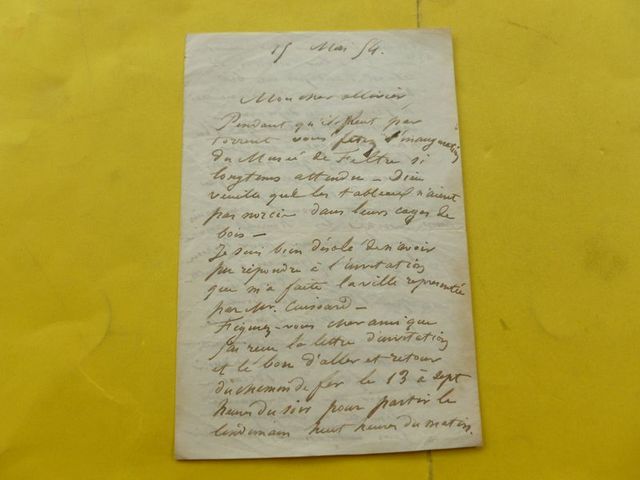 15 Mai 54.
Mon cher Olivier,
Pendant qu'il pleut par
torrent vous fetez l'inauguration
du Musée de Feltre si
longtems attendu – Dieu
veuille que les tableaux n'aient
pas noirci dans leurs cages de
bois –
Je suis bien désolé de n'avoir
pu répondre à l'invitation
que m'a faite la ville representée
par Mr.
Figurez-vous cher ami que
j'ai reçu la lettre d'invitation
et le bon d'aller et retour
du chemin de fer le 13 à sept
heures du soir pour partir le
lendemain huit heures du matin.